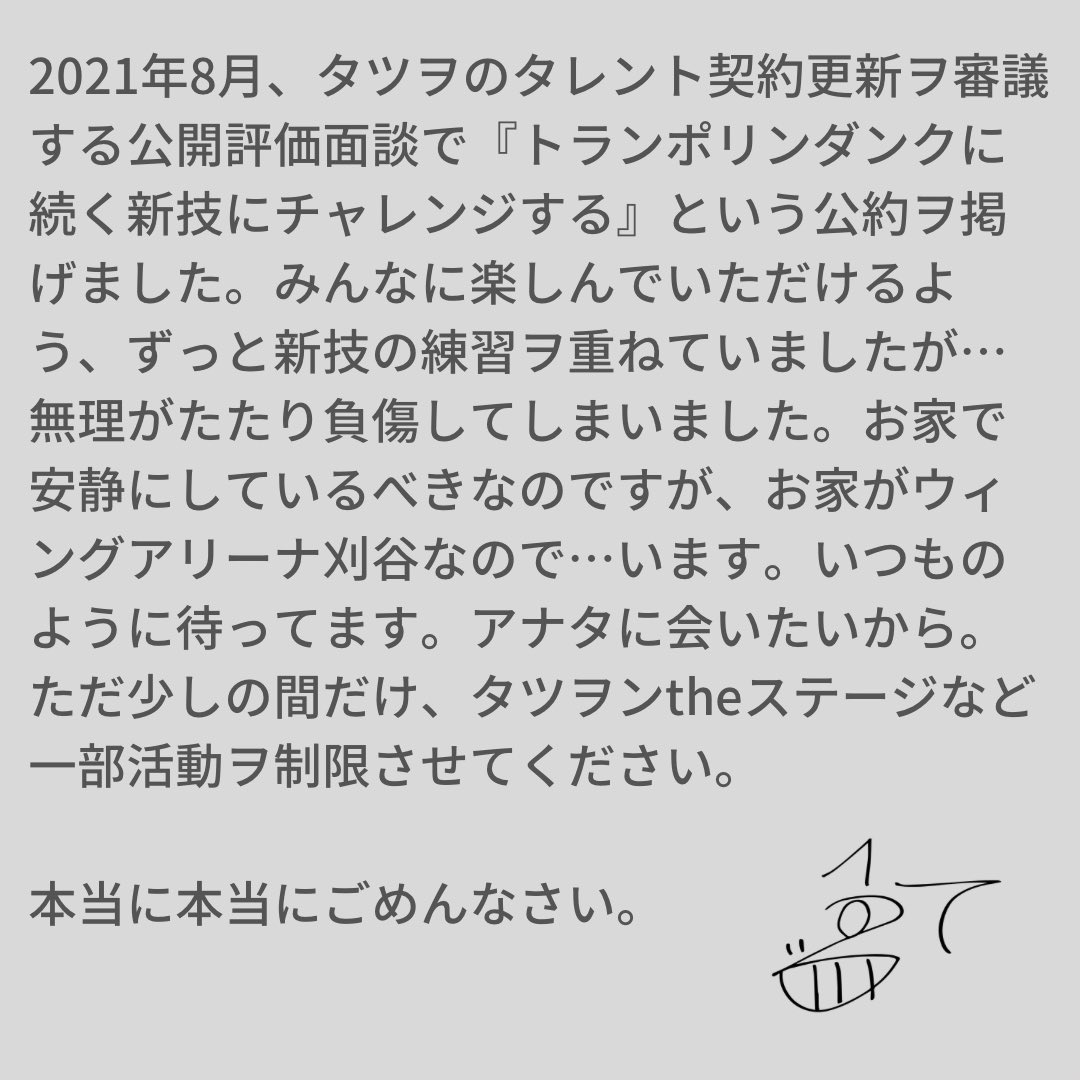 2021年8月、タツヲのタレント契約更新ヲ審議
する公開評価面談で『トランポリンダンクに
続く新技にチャレンジする』という公約ヲ掲
げました。みんなに楽しんでいただけるよ
う、ずっと新技の練習ヲ重ねていましたが…
無理がたたり負傷してしまいました。お家で
安静にしているべきなのですが、お家がウィ
ングアリーナ刈谷なので…います。いつもの
ように待ってます。アナタに会いたいから。
ただ少しの間だけ、タツヲンtheステージなど
一部活動ヲ制限させてください。
本当に本当にごめんなさい。